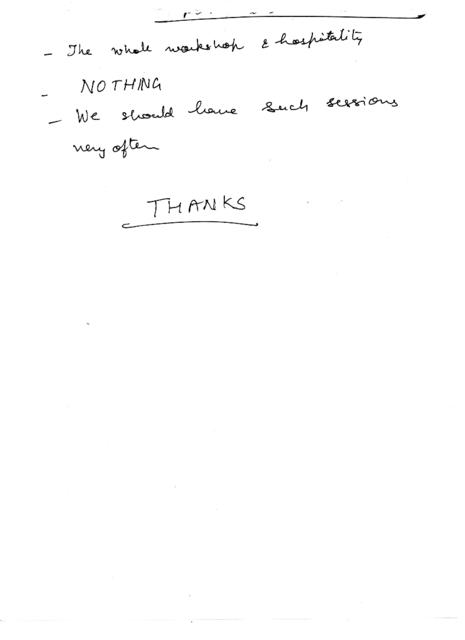 - The whole workshop & hospitality
- NOTHING
- We should have such sessions
very often
THANKS